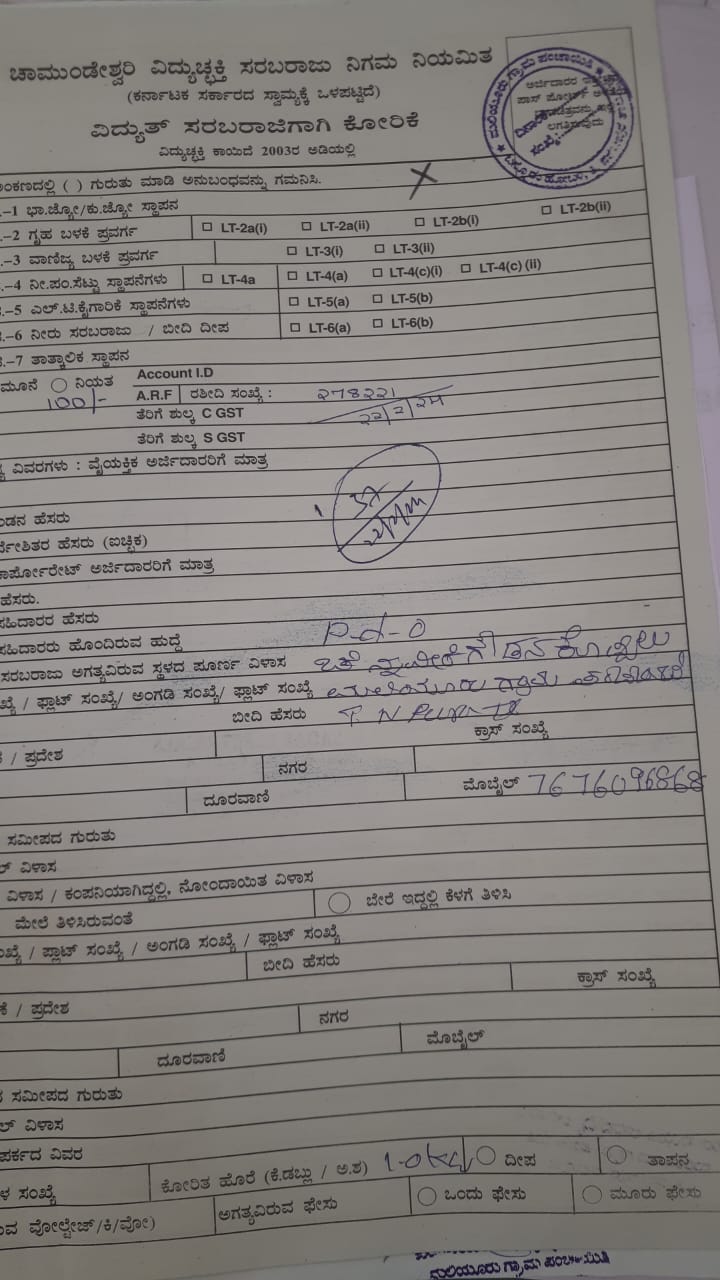 ಚಾಮುಂಡೇಶ್ವರಿ ವಿದ್ಯುಚ್ಛಕ್ತಿ ಸರಬರಾಜು ನಿಗಮ ನಿಯಮಿತ
(ಕರ್ನಾಟಕ ಸರ್ಕಾರದ ಸ್ವಾಮ್ಯಕ್ಕೆ ಒಳಪಟ್ಟಿದೆ)
ವಿದ್ಯುತ್ ಸರಬರಾಜಿಗಾಗಿ ಕೋರಿಕೆ
ವಿದ್ಯುಚ್ಛಕ್ತಿ ಕಾಯಿದೆ 2003ರ ಅಡಿಯಲ್ಲಿ
ಅರ್ಜಿದಾರರ
ಅಂಕಣದಲ್ಲಿ ( ) ಗುರುತು ಮಾಡಿ ಅನುಬಂಧವನ್ನು ಗಮನಿಸಿ.
–1 ಭಾ.ಜ್ಯೋ/ಕು.ಜ್ಯೋ ಸ್ಥಾಪನ
–2 ಗೃಹ ಬಳಕೆ ಪ್ರವರ್ಗ LT-2a(i) LT-2a(ii) LT-2b(i) LT-2b(ii)
–3 ವಾಣಿಜ್ಯ ಬಳಕೆ ಪ್ರವರ್ಗ LT-3(i) LT-3(ii)
–4 ನೀ.ಪಂ.ಸೆಟ್ಟು ಸ್ಥಾಪನೆಗಳು LT-4a LT-4(a) LT-4(c)(i) LT-4(c) (ii)
–5 ಎಲ್.ಟಿ.ಕೈಗಾರಿಕೆ ಸ್ಥಾಪನೆಗಳು LT-5(a) LT-5(b)
–6 ನೀರು ಸರಬರಾಜು / ಬೀದಿ ದೀಪ LT-6(a) LT-6(b)
–7 ತಾತ್ಕಾಲಿಕ ಸ್ಥಾಪನ
ಮೂನೆ ನಿಯತ Account I.D
100/- A.R.F ರಶೀದಿ ಸಂಖ್ಯೆ :
ತೆರಿಗೆ ಶುಲ್ಕ C GST
ತೆರಿಗೆ ಶುಲ್ಕ S GST
ವಿವರಗಳು : ವೈಯಕ್ತಿಕ ಅರ್ಜಿದಾರರಿಗೆ ಮಾತ್ರ
ಂಡನ ಹೆಸರು
ರ್ದೇಶಿತರ ಹೆಸರು (ಐಚ್ಛಿಕ)
ಾರ್ಪೋರೇಟ್ ಅರ್ಜಿದಾರರಿಗೆ ಮಾತ್ರ
ಹೆಸರು.
ಸಹಿದಾರರ ಹೆಸರು
ಸಹಿದಾರರು ಹೊಂದಿರುವ ಹುದ್ದೆ P-d-0
ಸರಬರಾಜು ಅಗತ್ಯವಿರುವ ಸ್ಥಳದ ಪೂರ್ಣ ವಿಳಾಸ
ಖ್ಯೆ / ಫ್ಲಾಟ್ ಸಂಖ್ಯೆ/ ಅಂಗಡಿ ಸಂಖ್ಯೆ/ ಫ್ಲಾಟ್ ಸಂಖ್ಯೆ
ಬೀದಿ ಹೆಸರು T. N
/ ಪ್ರದೇಶ ಕ್ರಾಸ್ ಸಂಖ್ಯೆ
ನಗರ
ದೂರವಾಣಿ ಮೊಬೈಲ್ 7676096868
ಸಮೀಪದ ಗುರುತು
ಲ್ ವಿಳಾಸ
ವಿಳಾಸ / ಕಂಪನಿಯಾಗಿದ್ದಲ್ಲಿ, ನೋಂದಾಯಿತ ವಿಳಾಸ
ಮೇಲೆ ತಿಳಿಸಿರುವಂತೆ ಬೇರೆ ಇದ್ದಲ್ಲಿ ಕೆಳಗೆ ತಿಳಿಸಿ
ಖ್ಯೆ / ಪ್ಲಾಟ್ ಸಂಖ್ಯೆ / ಅಂಗಡಿ ಸಂಖ್ಯೆ / ಫ್ಲಾಟ್ ಸಂಖ್ಯೆ
ಬೀದಿ ಹೆಸರು
ಕೆ / ಪ್ರದೇಶ ಕ್ರಾಸ್ ಸಂಖ್ಯೆ
ನಗರ
ದೂರವಾಣಿ ಮೊಬೈಲ್
ಸಮೀಪದ ಗುರುತು
ಲ್ ವಿಳಾಸ
ಪರ್ಕದ ವಿವರ
ಳ ಸಂಖ್ಯೆ ಕೋರಿತ ಹೊರೆ (ಕಿ.ಡಬ್ಲು / ಅ.ಶ) 1-0 KW ದೀಪ ತಾಪನ
ುವ ವೋಲ್ಟೇಜ್/ಕಿ/ವೋ) ಅಗತ್ಯವಿರುವ ಫೇಸು ಒಂದು ಫೇಸು ಮೂರು ಫೇಸು
ಮಲಿಯೂರು ಗ್ರಾಮ ಪಂಚಾಯಿತಿ